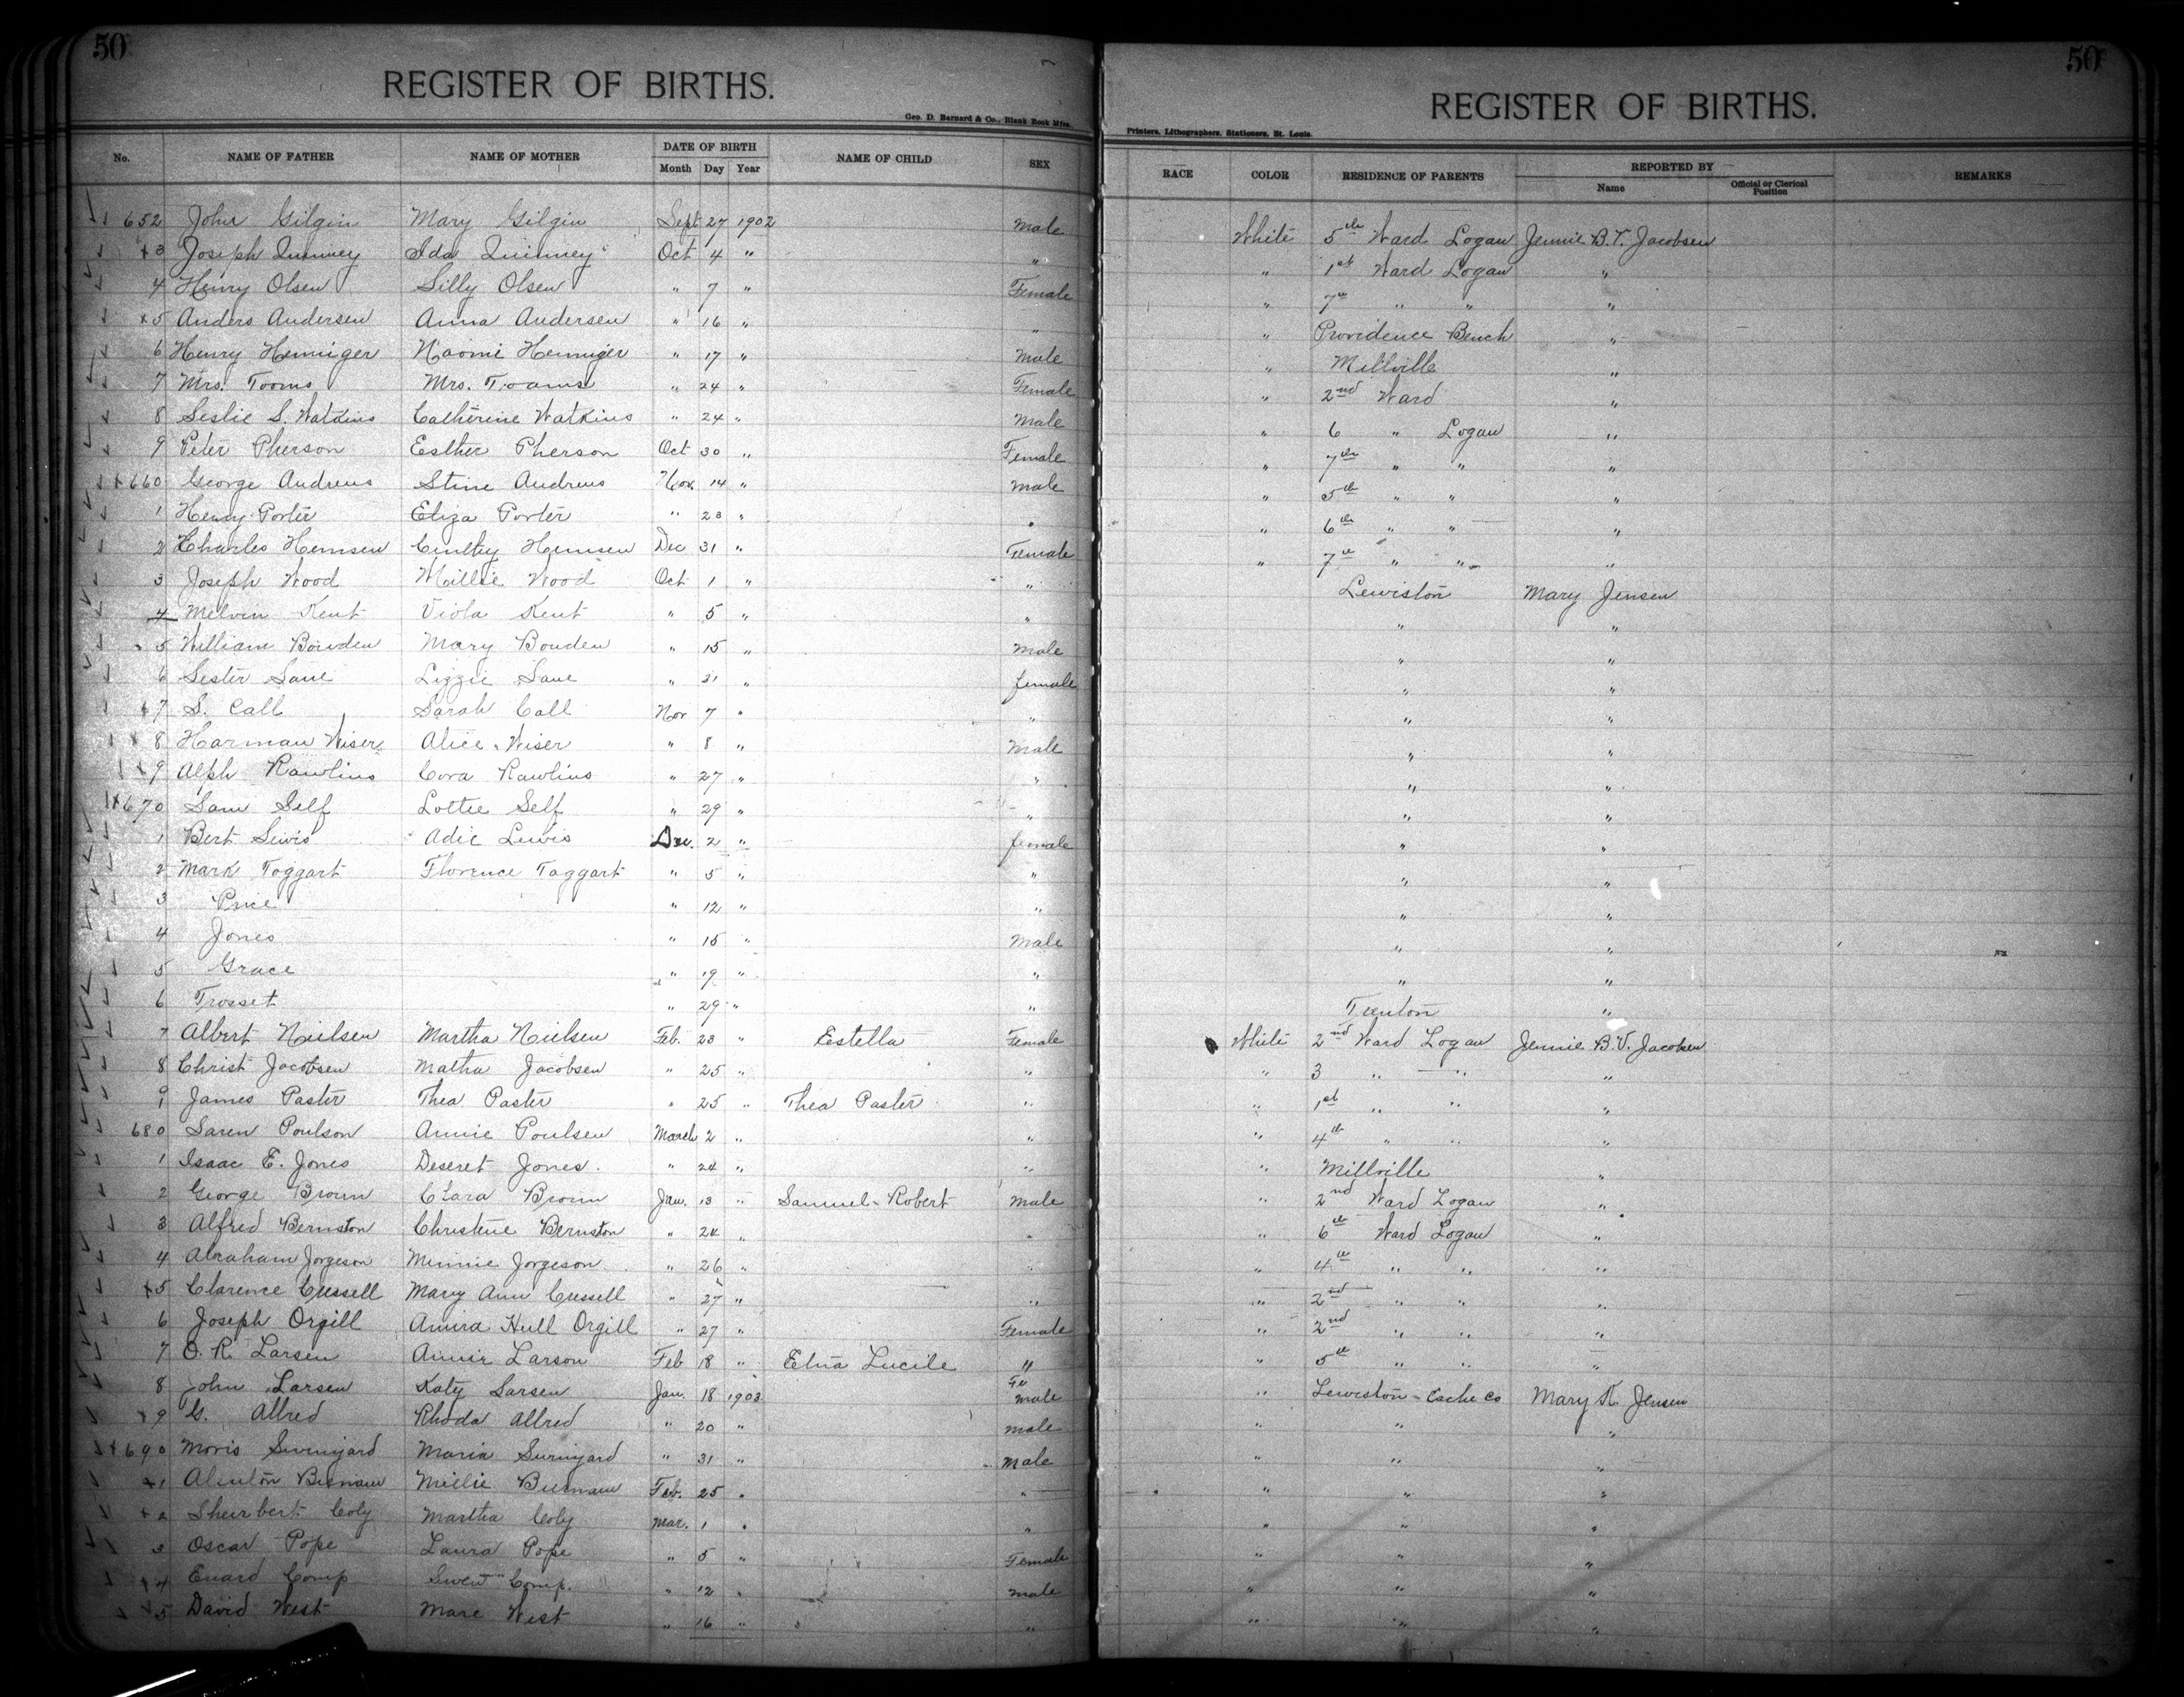 50
REGISTER OF BIRTHS.
Geo. D. Barnard & Co., Blank Book Mfrs.
50
REGISTER OF BIRTHS.
Printers, Lithographers, Stationers, St. Louis.
No. NAME OF FATHER NAME OF MOTHER DATE OF BIRTH Month Day Year NAME OF CHILD SEX RACE COLOR RESIDENCE OF PARENTS REPORTED BY Name Official or Clerical Position REMARKS
652 John Gilgin Mary Gilgin Sept 27 1902 Male White 5th Ward Logan Jennie B.V. Jacobsen
3 Joseph Quinney Ida Quinney Oct 4 " " " 1st Ward Logan "
4 Henry Olsen Lilly Olsen " 7 " Female " 7th " " "
5 Anders Andersen Anna Andersen " 16 " " " Providence Bench "
6 Henry Henniger Naomi Henniger " 17 " Male " Millville "
7 Mrs. Tooms Mrs. Tooms " 24 " Female " 2nd Ward "
8 Leslie L. Watkins Catherine Watkins " 24 " Male " 6 " Logan "
9 Peter Pherson Esther Pherson Oct 30 " Female " 7th " " "
660 George Andrews Stine Andrews Nov. 14 " Male " 5th " " "
1 Henry Porter Eliza Porter " 23 " " " 6th " " "
2 Charles Hemsen Hemsen Dec 31 " Female " 7th " " "
3 Joseph Wood Millie Wood Oct 1 " " Lewiston Mary Jensen
4 Melvin Kent Viola Kent " 5 " " " "
5 William Bowden Mary Bouden " 15 " Male " "
6 Lester Lane Lizzie Lane " 31 " female " "
7 S. Call Sarah Call Nov 7 " " " "
8 Harman Wiser Alice Wiser " 8 " Male " "
9 Alph Rawlins Cora Rawlins " 27 " " " "
670 Sam Self Lottie Self " 29 " " " "
1 Bert Lewis Adie Lewis Dec. 2 " female " "
2 Mark Taggart Florence Taggart " 5 " " " "
3 Price " 12 " " " "
4 Jones " 15 " Male " "
5 Grace " 19 " " " "
6 Trosset " 29 " " Trenton "
7 Albert Nielsen Martha Nielsen Feb. 23 " Estella Female White 2nd Ward Logan Jennie B.V. Jacobsen
8 Christ Jacobsen Matha Jacobsen " 25 " " " 3 " " "
9 James Paster Thea Paster " 25 " Thea Paster " " 1st " " "
680 Saren Poulson Annie Poulsen March 2 " " " 4th " " "
1 Isaac E. Jones Deseret Jones. " 24 " " " Millville "
2 George Brown Clara Brown Jan. 13 " Samuel Robert Male " 2nd Ward Logan "
3 Alfred Bernston Christine Bernston " 24 " " " 6th Ward Logan "
4 Abraham Jorgeson Minnie Jorgeson " 26 " " " 4th " " "
5 Clarence Cussell Mary Ann Cussell " 27 " " " 2nd " " "
6 Joseph Orgill Amira Hull Orgill " 27 " Female " 2nd " " "
7 O. R. Larsen Annie Larson Feb 18 " Elna Lucile " " 5th " " "
8 John Larsen Katy Larsen Jan. 18 1903 Fe male " Lewiston - Cache Co Mary K. Jensen
9 G. Allred Rhoda Allred " 20 " male " " "
690 Moris Swinyard Maria Swinyard " 31 " Male " " "
1 Alenton Burnam Millie Burnam Feb. 25 " " " " "
2 Coly Martha Coly Mar. 1 " " " " "
3 Oscar Pope Laura Pope " 5 " Female " " "
4 Euard Comp Comp. " 12 " male " " "
5 David West Mare West " 16 " " " " "